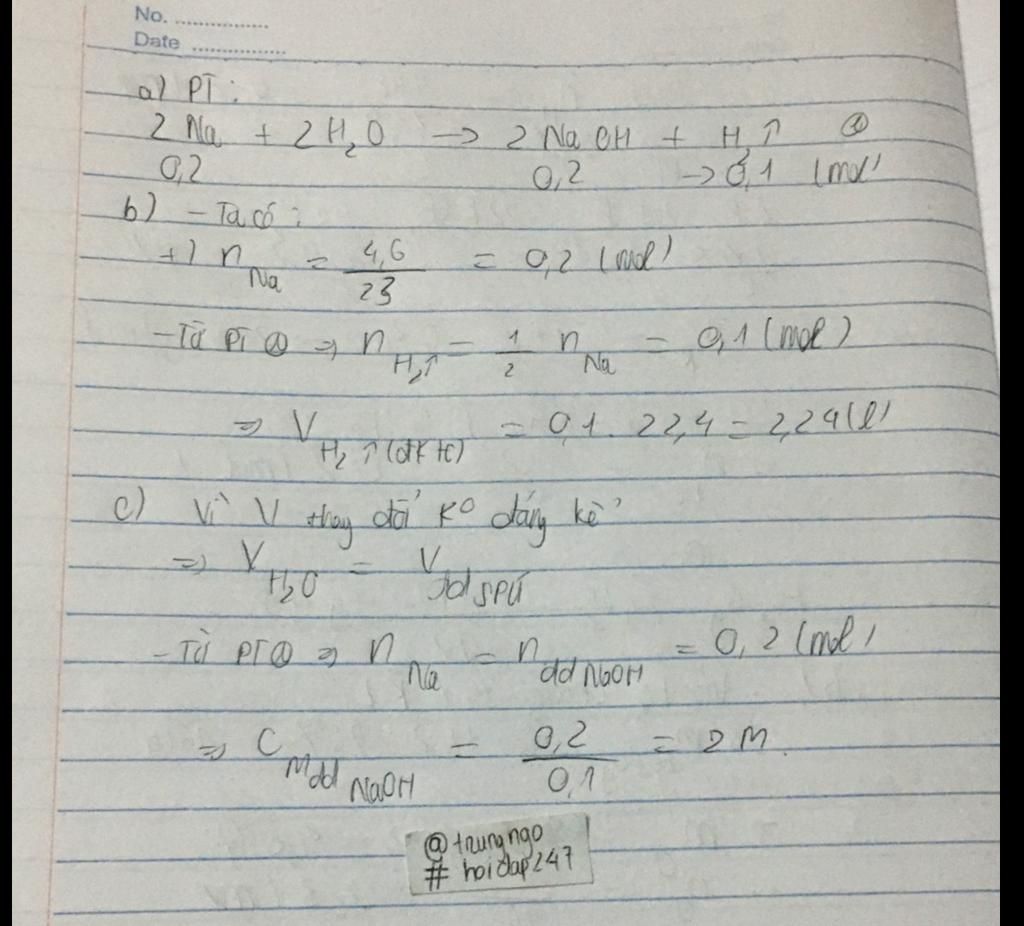 No. ................
Date ................
a) PT :
2 Na + 2H₂O → 2 NaOH + H₂↑ ①
0,2 0,2 → 0,1 (mol)
b) - Ta có :
+) n_Na = 4,6/23 = 0,2 (mol)
- Từ PT ① ⇒ n_H₂↑ = 1/2 n_Na = 0,1 (mol)
⇒ V_H₂↑(đktc) = 0,1 . 22,4 = 2,24 (l)
c) Vì V thay đổi k° đáng kể
⇒ V_H₂O = V_dd SPƯ
- Từ PT ① ⇒ n_Na = n_dd NaOH = 0,2 (mol)
⇒ C_M dd NaOH = 0,2/0,1 = 2 M.
@trungngo
# hoidap247